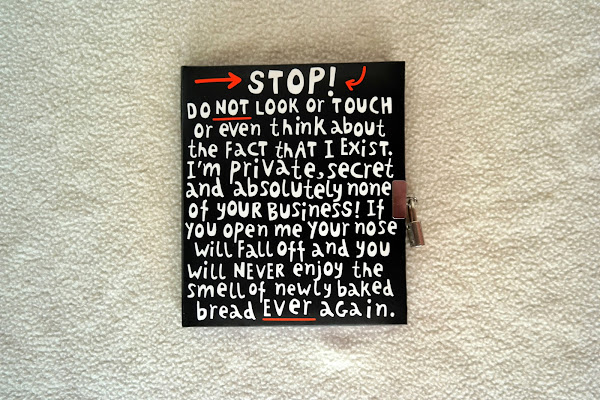 STOP!
DO NOT LOOK or TOUCH
or even think about
the FACT thAT I EXIST.
I'm private, secret
and absolutely none
of YOUR BUSINESS! If
you open me your nose
will fall off and you
will NEVER enjoy the
smell of newly baked
bread Ever again.